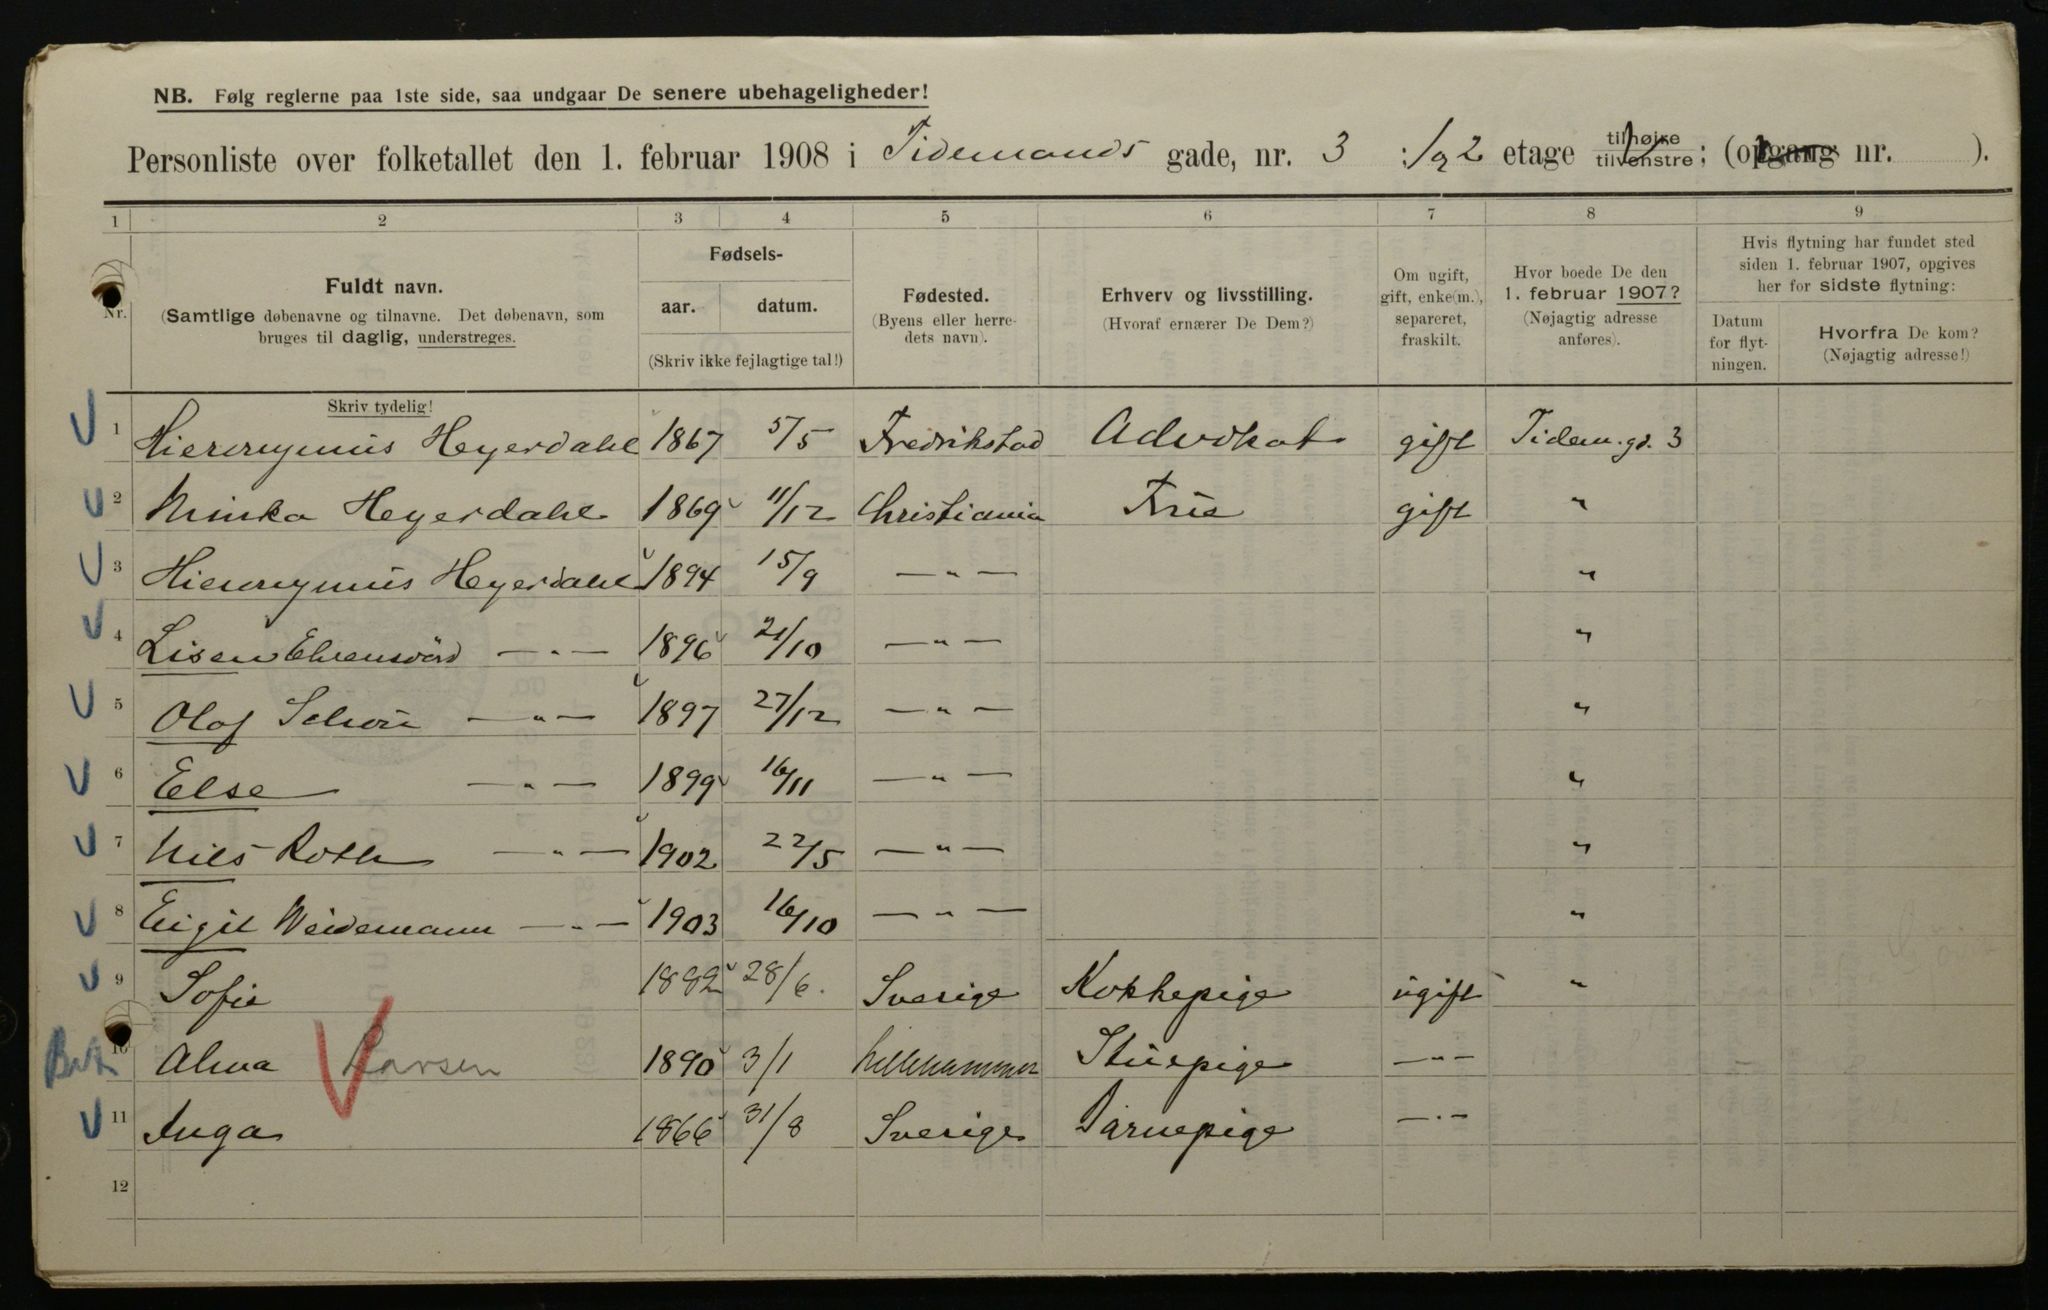 NB. Følg reglerne paa 1ste side, saa undgaar De senere ubehageligheder!
Personliste over folketallet den 1. februar 1908 i Tidemands gade, nr. 3 : 1 og 2 etage tilhøire tilvenstre; (opgang nr. ).
1 2 3 4 5 6 7 8 9
Nr.
Fuldt navn.
(Samtlige døbenavne og tilnavne. Det døbenavn, som
bruges til daglig, understreges.
Fødsels-
aar. datum.
(Skriv ikke fejlagtige tal!)
Fødested.
(Byens eller herre-
dets navn).
Erhverv og livsstilling.
(Hvoraf ernærer De Dem?)
Om ugift,
gift, enke(m.),
separeret,
fraskilt.
Hvor boede De den
1. februar 1907?
(Nøjagtig adresse
anføres).
Hvis flytning har fundet sted
siden 1. februar 1907, opgives
her for sidste flytning:
Datum
for flyt-
ningen.
Hvorfra De kom?
(Nøjagtig adresse!)
Skriv tydelig!
1 Hieronymus Heyerdahl 1867 5/5 Fredrikstad Advokat gift Tidem.gd. 3
2 Minka Heyerdahl 1869 11/12 Christiania Frue gift "
3 Hieronymus Heyerdahl 1894 15/9 — " — "
4 Lisen Ehrensvärd — " — 1896 21/10 — " — "
5 Olaf Schou — " — 1897 27/12 — " — "
6 Else — " — 1899 16/11 — " — "
7 Nils Roth — " — 1902 22/5 — " — "
8 Eigil Weidemann — " — 1903 16/10 — " — "
9 Sofie 1882 28/6. Sverige Kokkepige ugift "
10 Alma Larsen 1890 3/1 Lillehammer Stuepige — " —
11 Inga 1866 31/8 Sverige Barnepige — " —
12